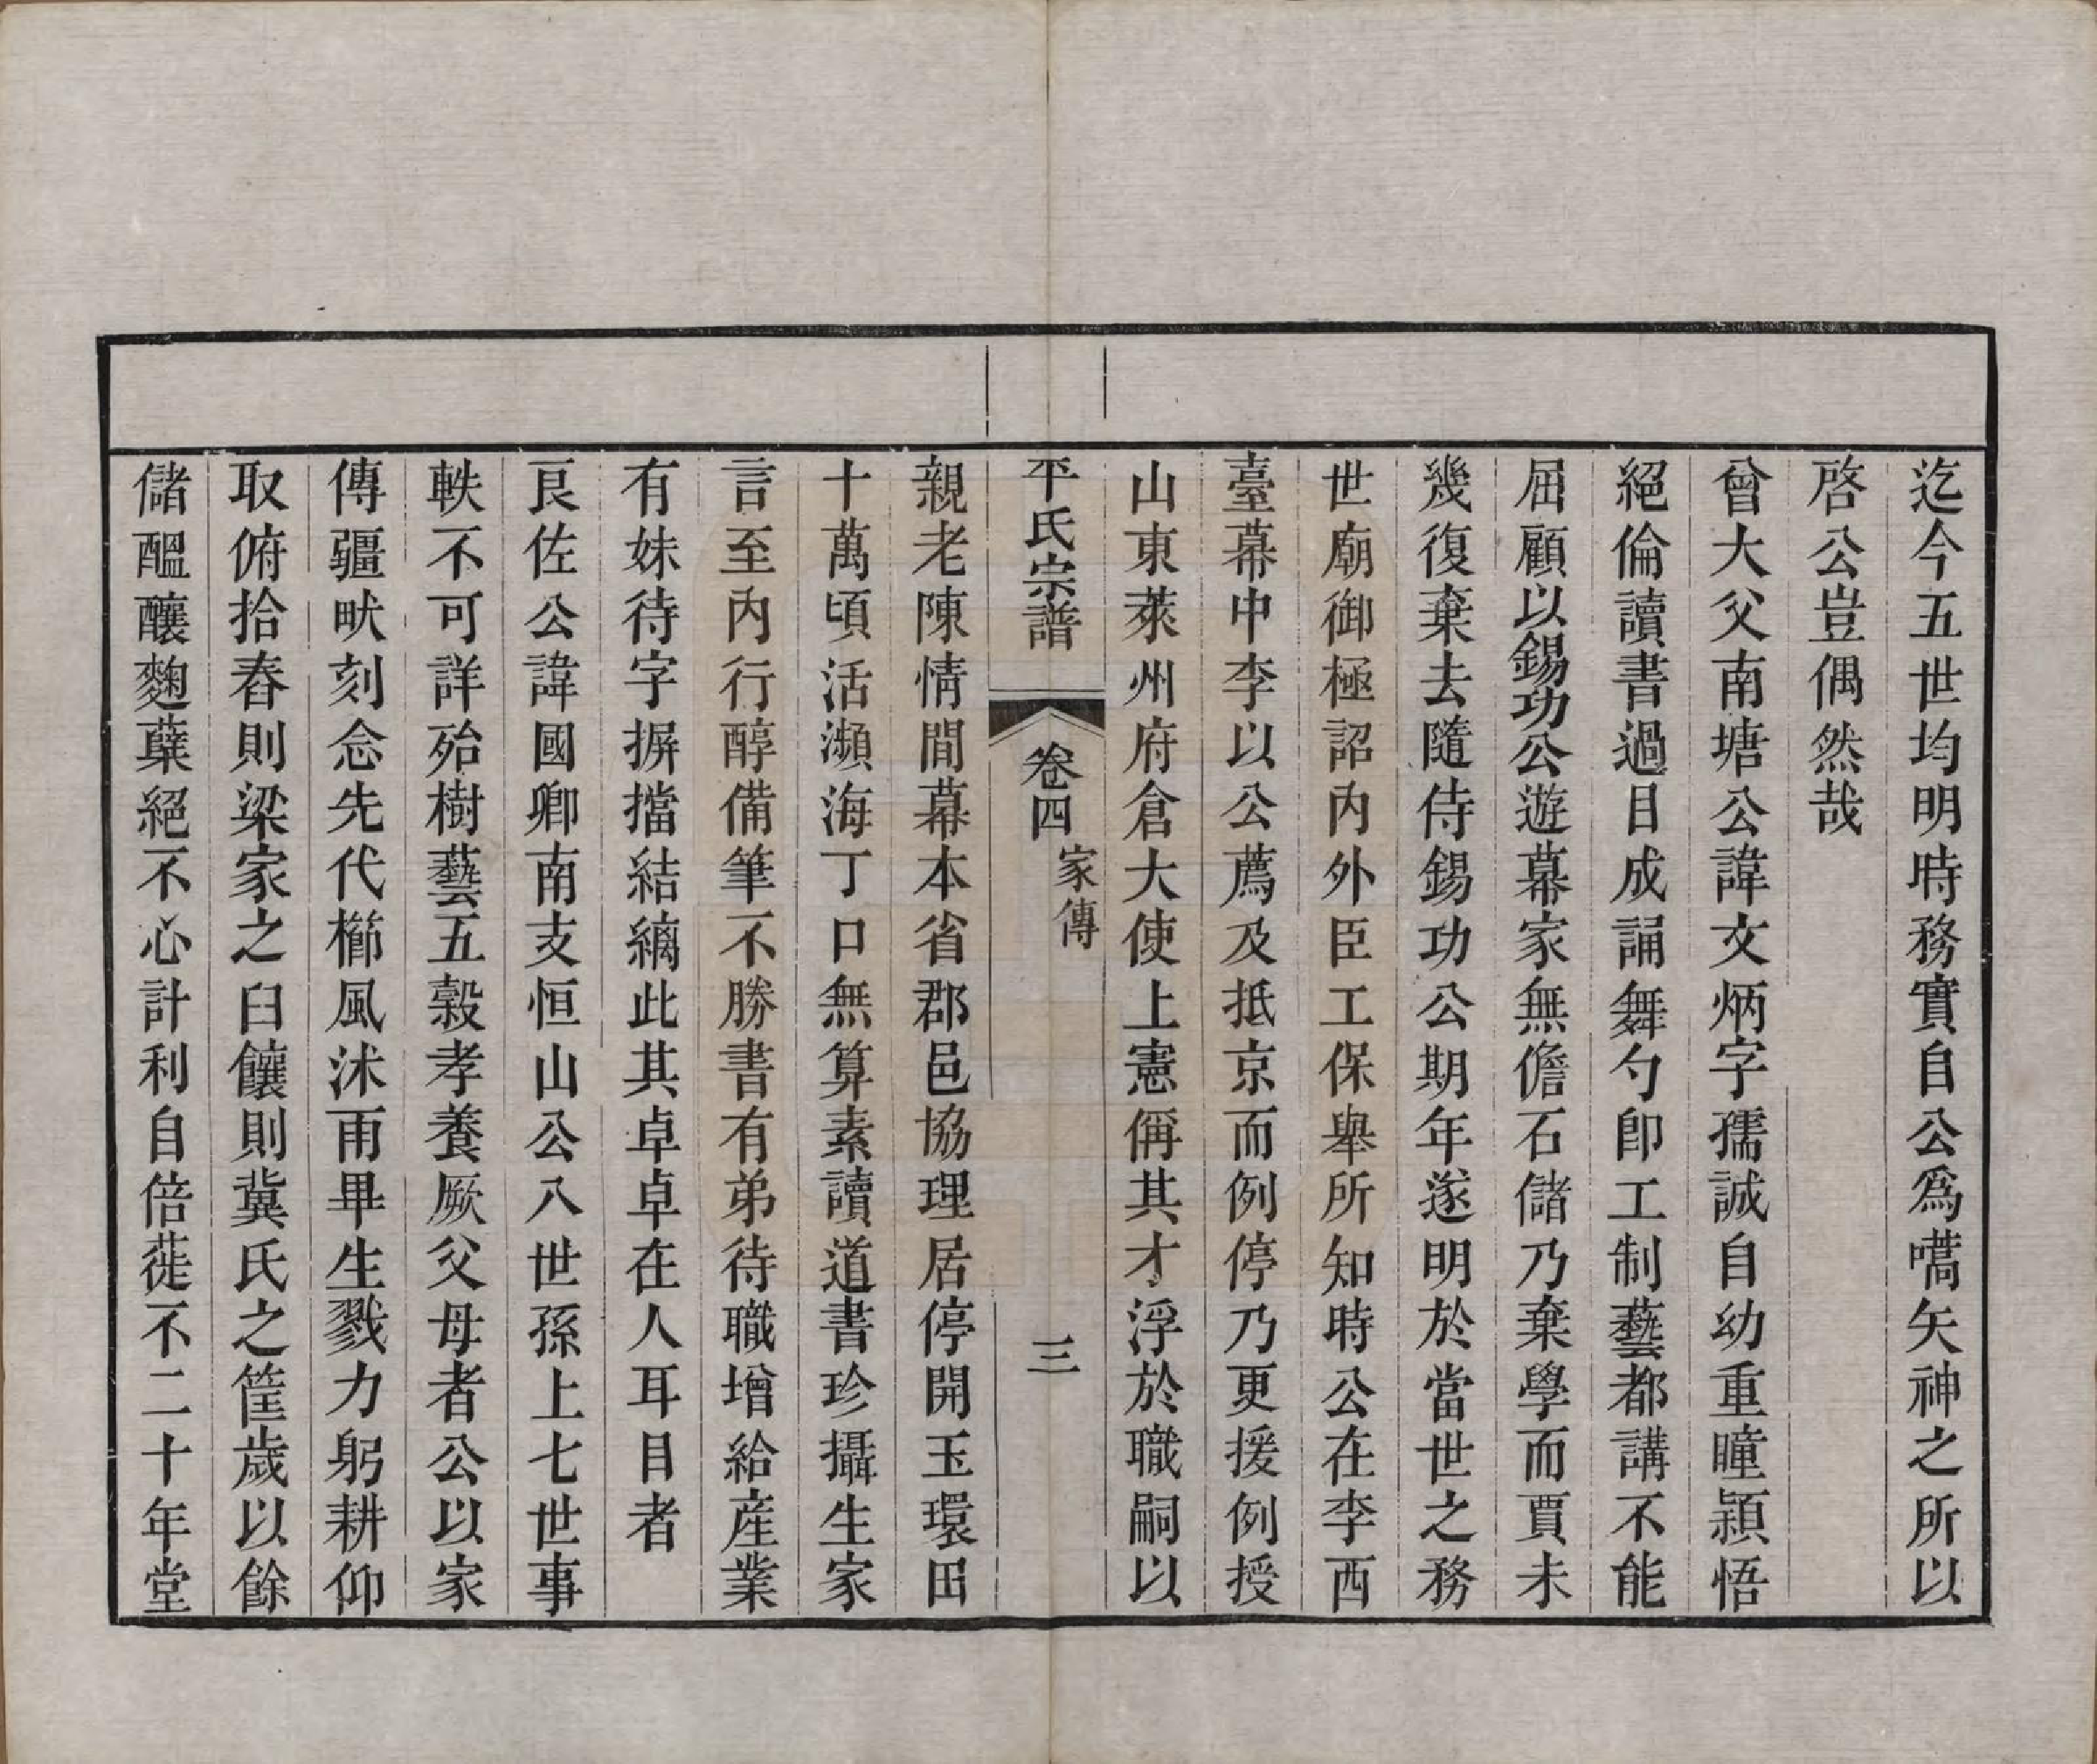 迄今五世均明時務實自公爲嚆矢神之所以
啓公豈偶然哉
曾大父南塘公諱文炳字孺誠自幼重瞳穎悟
絕倫讀書過目成誦舞勺卽工制藝都講不能
屈顧以錫功公遊幕家無儋石儲乃棄學而賈未
幾復棄去隨侍錫功公期年遂明於當世之務
世廟御極詔內外臣工保舉所知時公在李西
臺幕中李以公薦及抵京而例停乃更援例授
山東萊州府倉大使上憲偁其才浮於職嗣以
平氏宗譜 卷四 家傳 三
親老陳情閒幕本省郡邑協理居停開玉環田
十萬頃活瀕海丁口無算素讀道書珍攝生家
言至內行醇備筆不勝書有弟待職增給產業
有妹待字摒擋結縭此其卓卓在人耳目者
艮佐公諱國卿南支恒山公八世孫上七世事
軼不可詳殆樹藝五穀孝養厥父母者公以家
傳疆畎刻念先代櫛風沐雨畢生戮力躬耕仰
取俯拾舂則梁家之臼饟則冀氏之筐歲以餘
儲醞釀麴糵絕不心計利自倍蓰不二十年堂